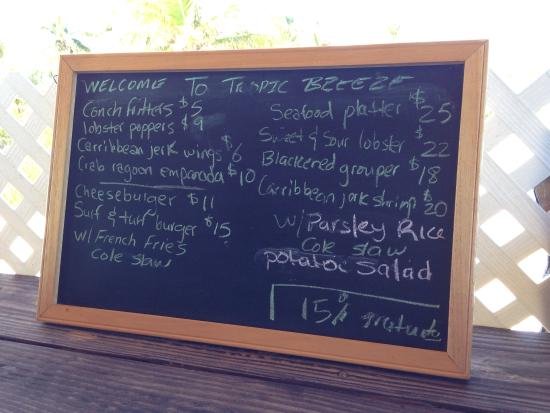 WELCOME TO TROPIC BREEZE
Conch fritters $5
lobster poppers $9
Carribbean jerk wings $6
Crab ragoon empanada $10
Cheeseburger $11
Surf & turf burger $15
W/ French Fries
Cole slaw
Seafood platter $25
Sweet & Sour lobster $22
Blackened grouper $18
Carribbean jerk shrimp $20
W/ Parsley Rice
Cole slaw
potatoe Salad
15%